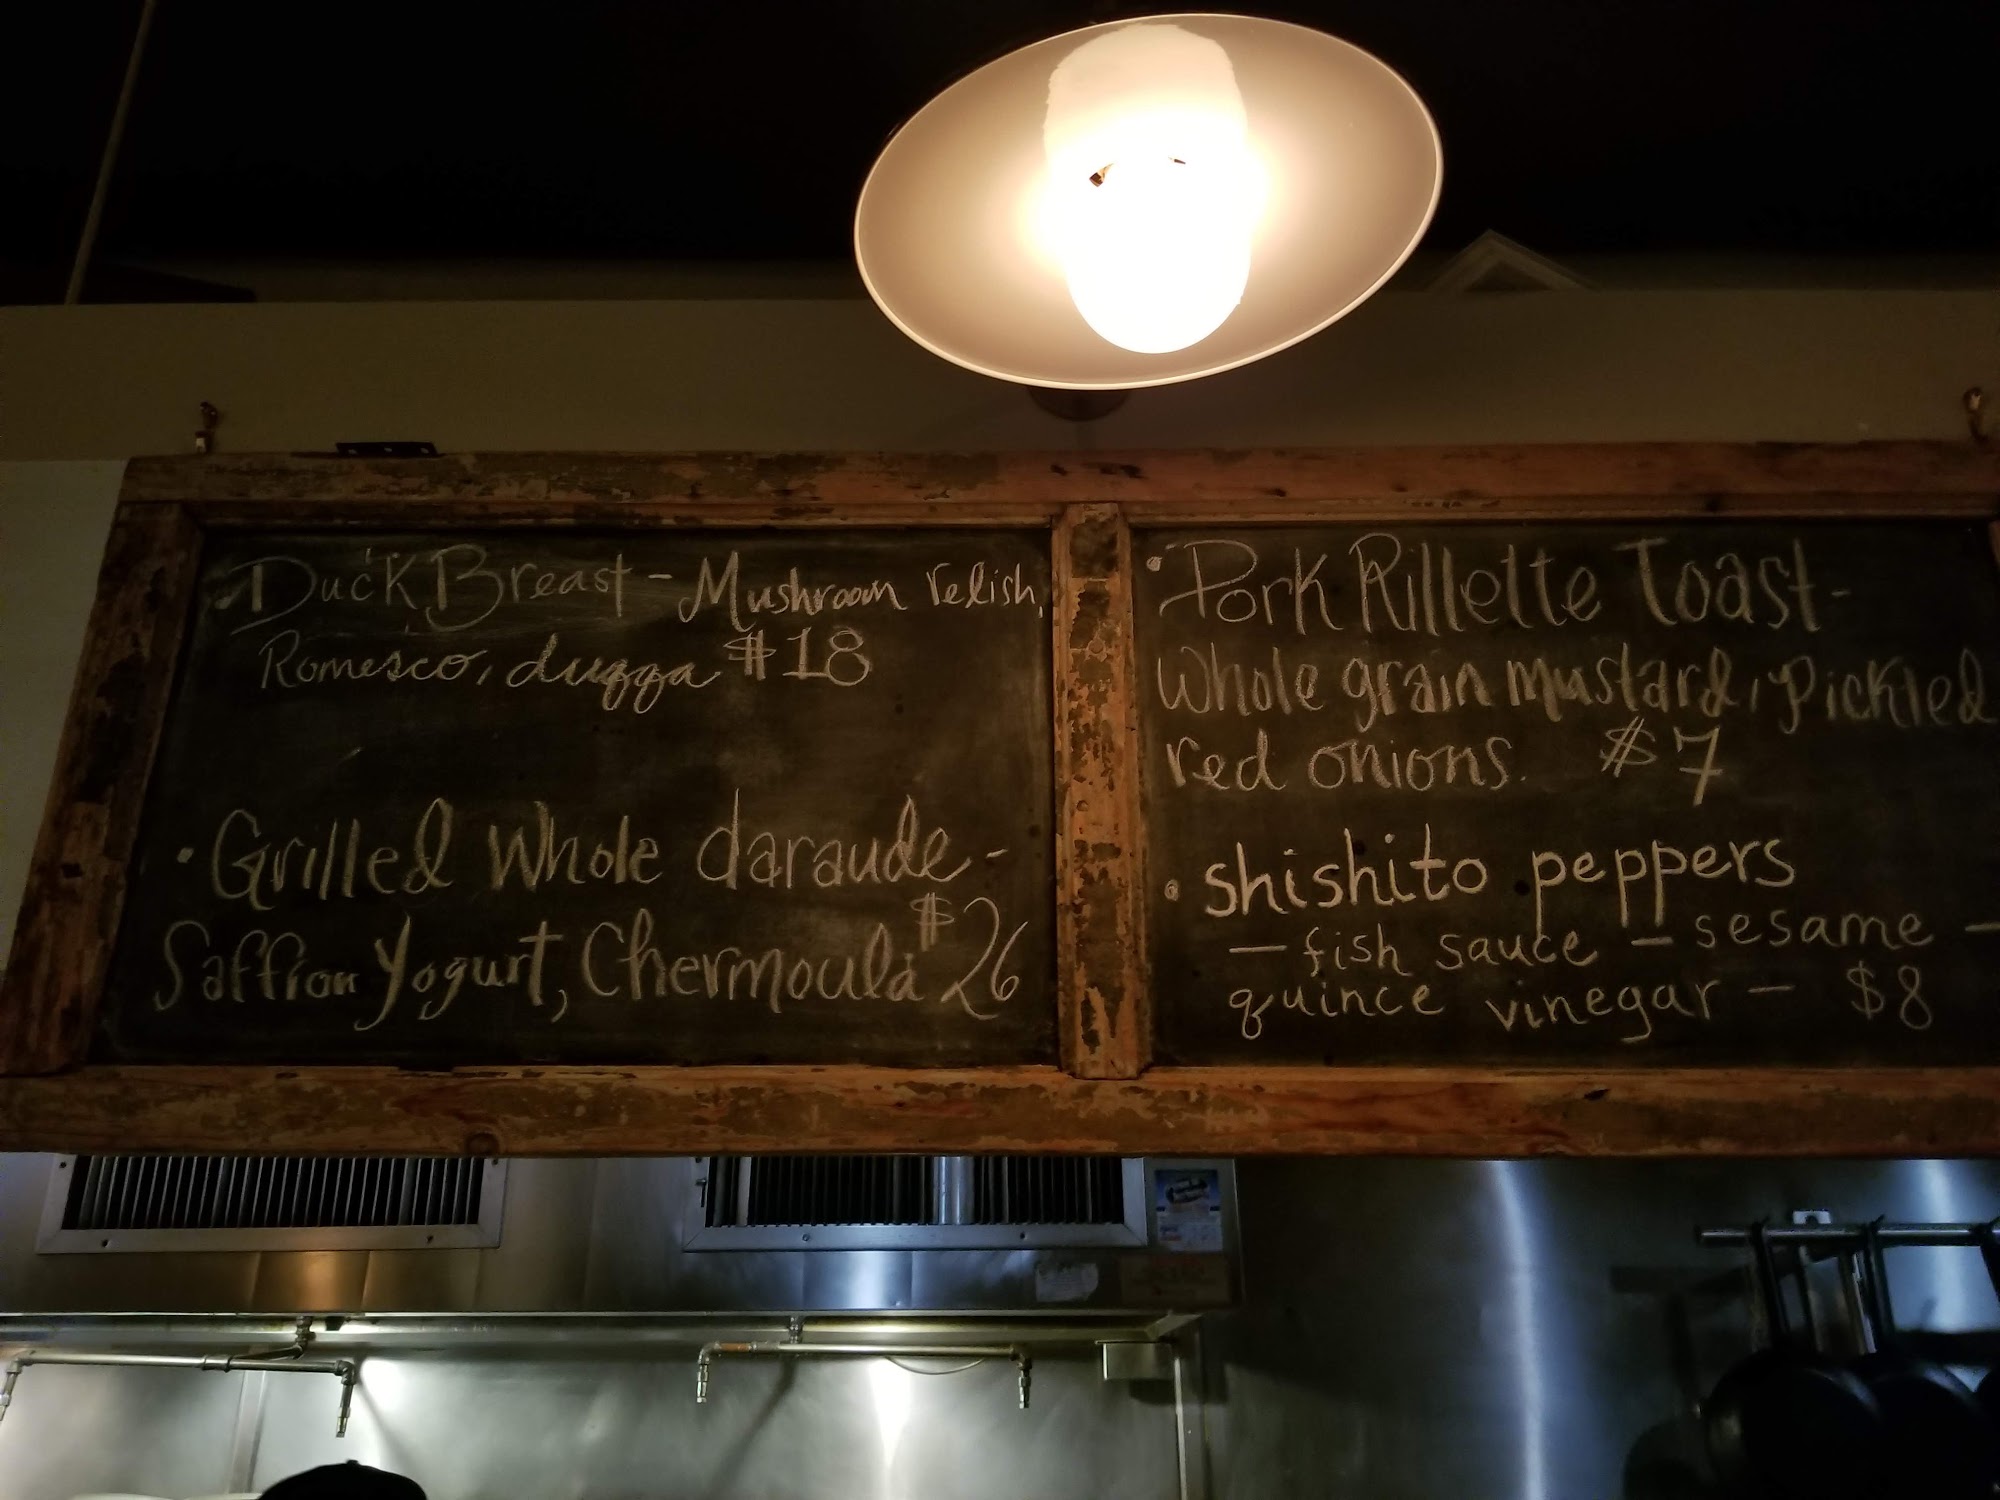 Duck Breast - Mushroom relish,
Romesco, dugga $18
• Grilled Whole daraude -
Saffron Yogurt, Chermoula $26
• Pork Rillette Toast -
Whole grain mustard, Pickled
red onions. $7
• shishito peppers
— fish sauce — sesame —
quince vinegar — $8